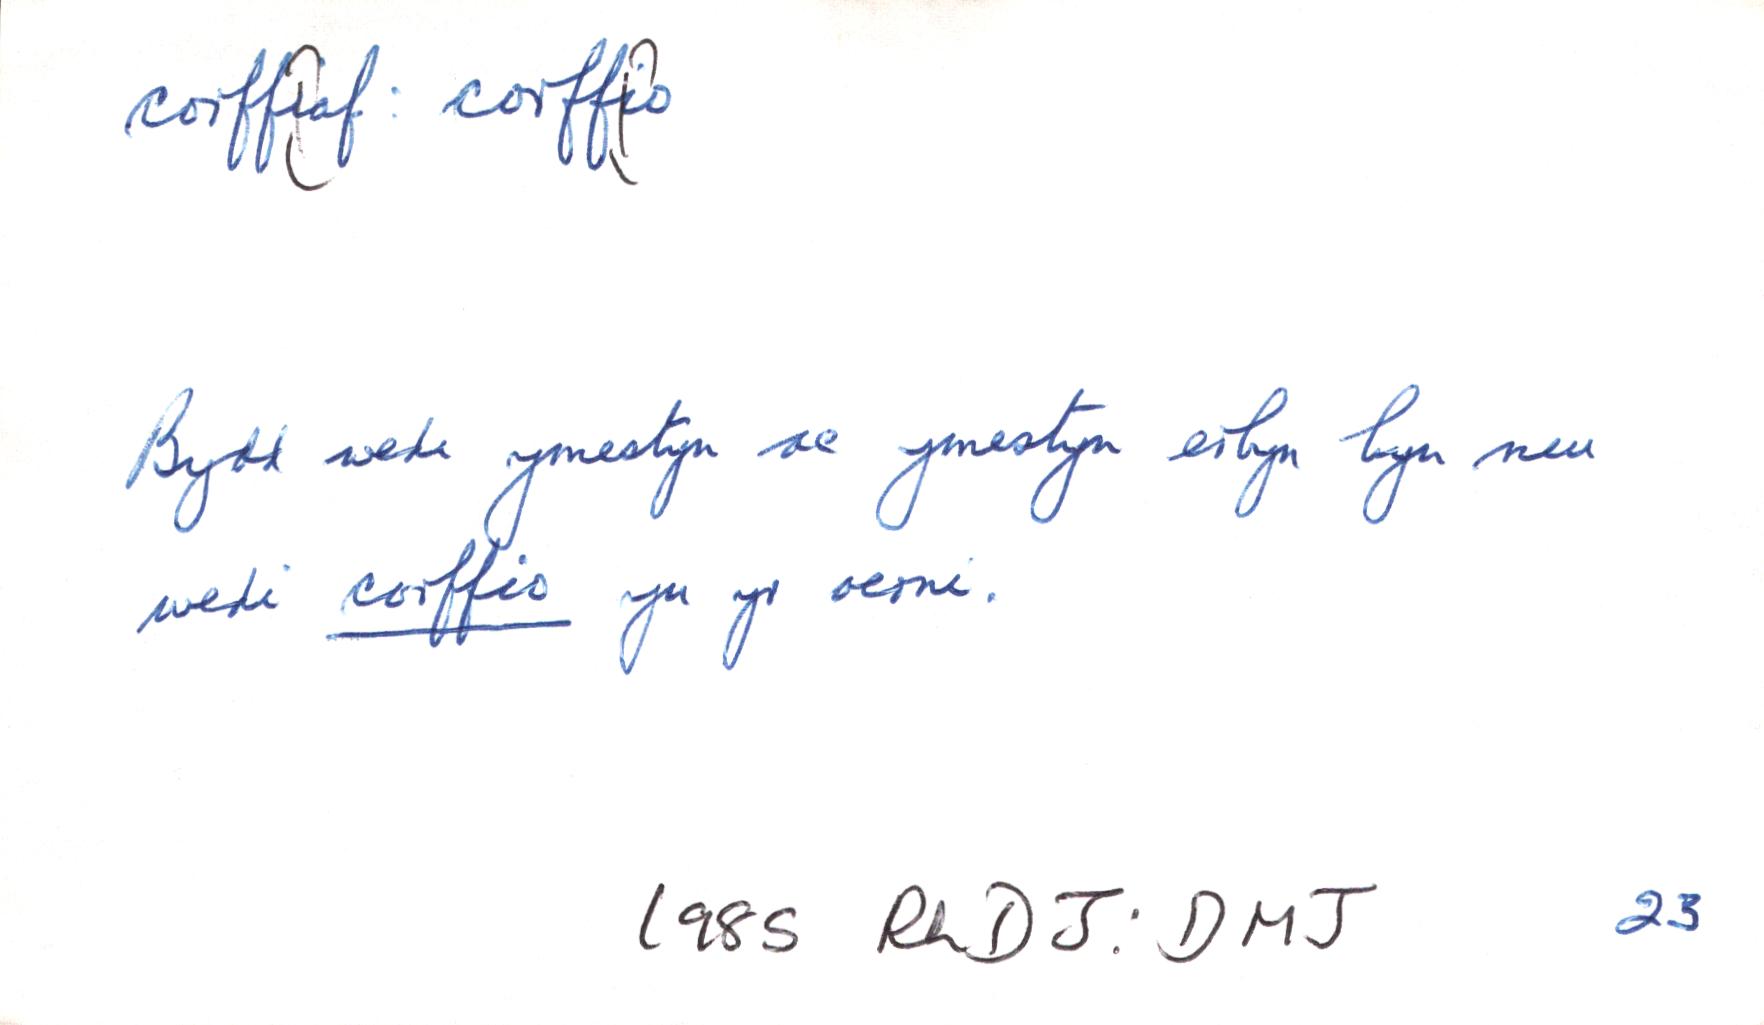 corff(i)af: corff(i)o
Bydd wedi ymestyn ac ymestyn erbyn hyn neu
wedi corffio yn yr oerni.
1985 RhDJ: DMJ 23